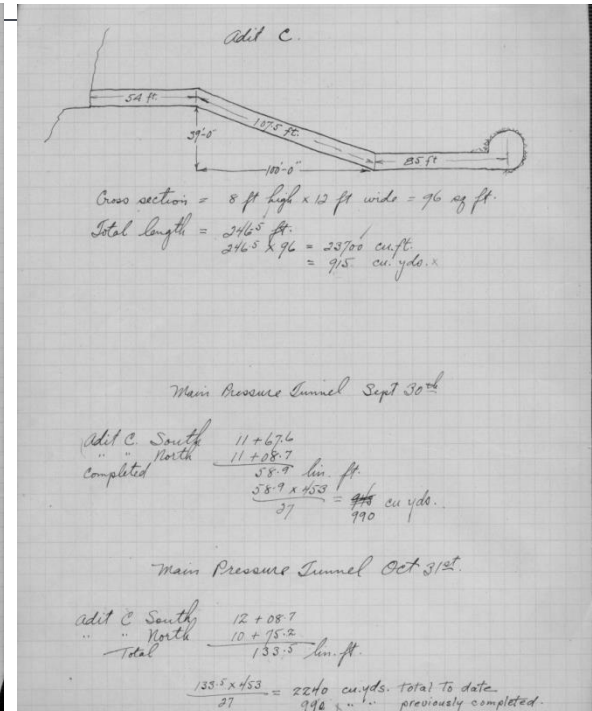 Adit C.
54 ft.
107.5 ft.
39'-0"
100'-0"
85 ft
Cross section = 8 ft high x 12 ft wide = 96 sq ft.
Total length = 246.5 ft.
246.5 x 96 = 23700 cu.ft.
= 915 cu. yds. x
Main Pressure Tunnel Sept 30th
Adit C. South 11 + 67.6
" " North 11 + 08.7
Completed 58.9 lin. ft.
58.9 x 453
27
= cu yds.
990
Main Pressure Tunnel Oct 31st.
Adit C South 12 + 08.7
" " North 10 + 75.2
Total 133.5 lin. ft.
133.5 x 453
27
= 2240 cu.yds. total to date
990 x " " previously completed.